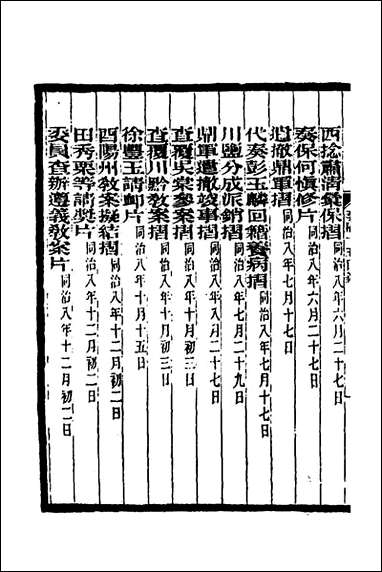 西捻肅清彙保摺 同治八年六月二十七日
奏保何慎修片 同治八年六月二十七日
撤鼎軍摺 同治八年七月十七日
代奏彭玉麟回籍養病摺 同治八年七月十七日
川鹽分成派銷摺 同治八年七月二十九日
鼎軍遣撤竣事摺 同治八年九月二十七日
查覆吳棠參案摺 同治八年十月初三日
查覆川黔教案摺 同治八年十月初三日
徐豐玉請卹片 同治八年十月十五日
酉陽州教案擬結摺 同治八年十二月初二日
田秀栗等請獎片 同治八年十二月初二日
委員查辦遵義教案片 同治八年十二月初二日